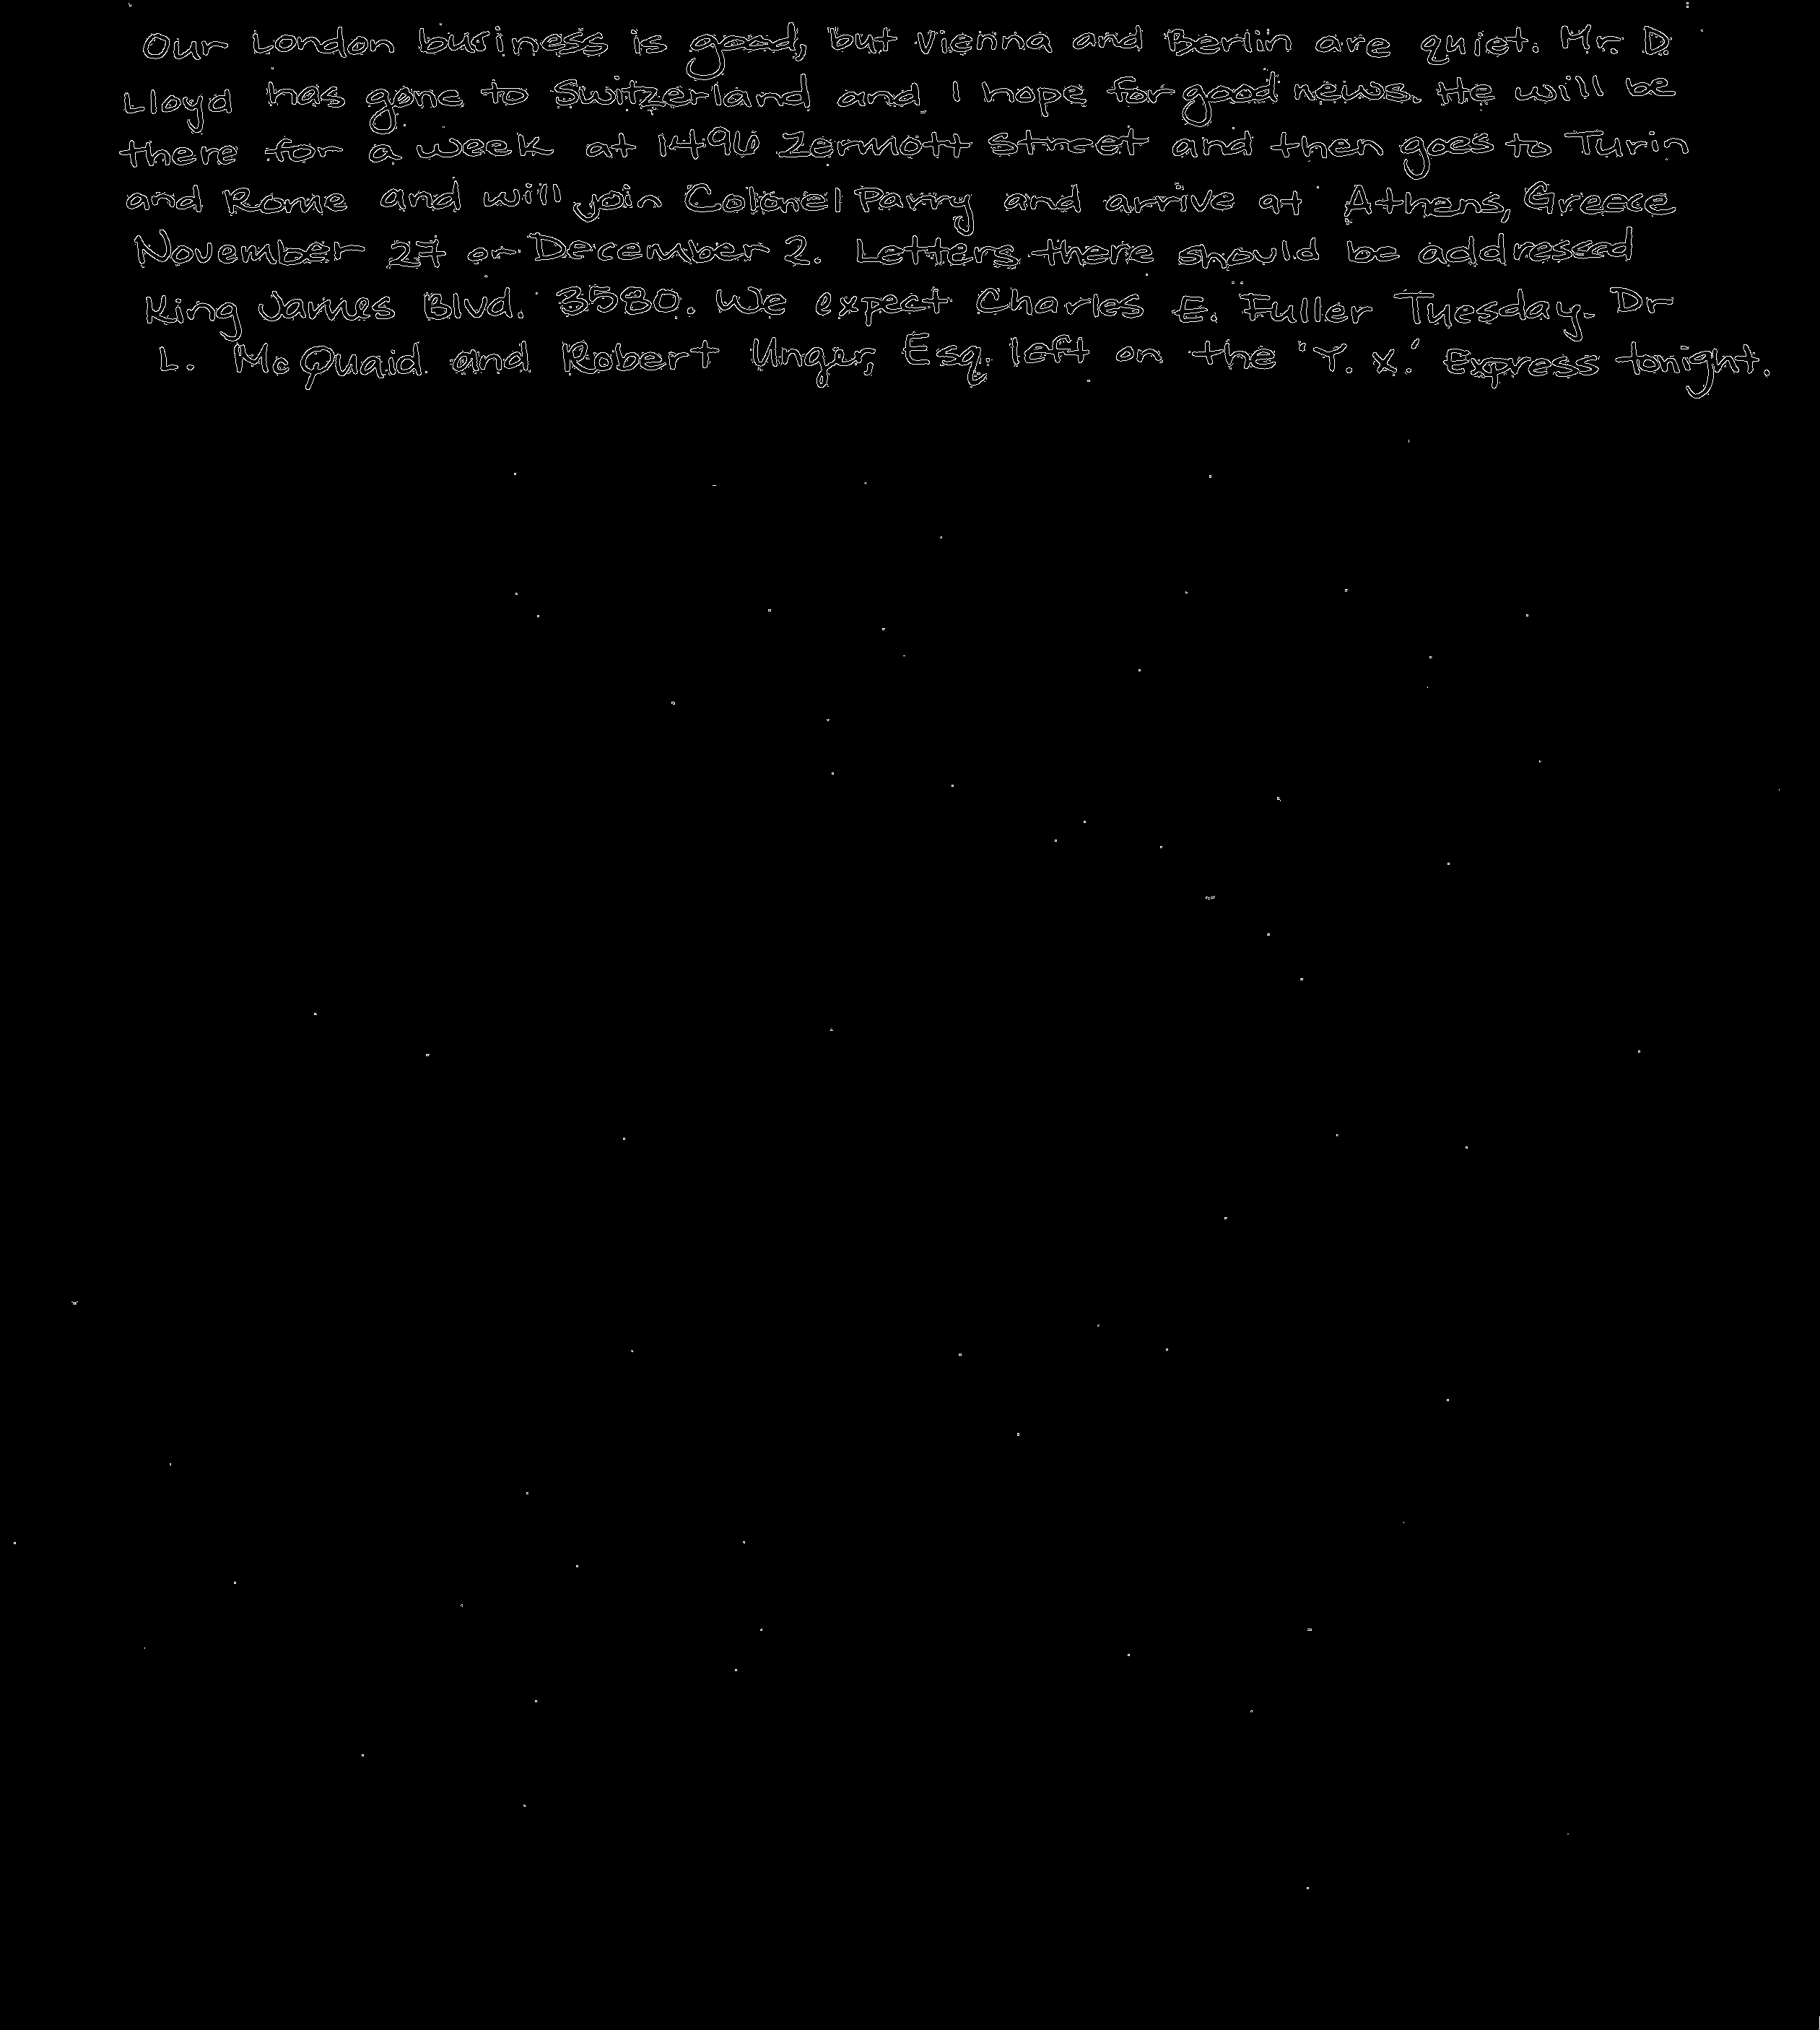 Our London business is good, but Vienna and Berlin are quiet. Mr. D.
Lloyd has gone to Switzerland and I hope for good news. He will be
there for a week at 1496 Zermott Street and then goes to Turin
and Rome and will join Colonel Parry and arrive at Athens, Greece
November 27 or December 2. Letters there should be addressed
King James Blvd. 3580. We expect Charles E. Fuller Tuesday. Dr
L. McQuaid and Robert Unger, Esq. left on the 'Y. X.' Express tonight.